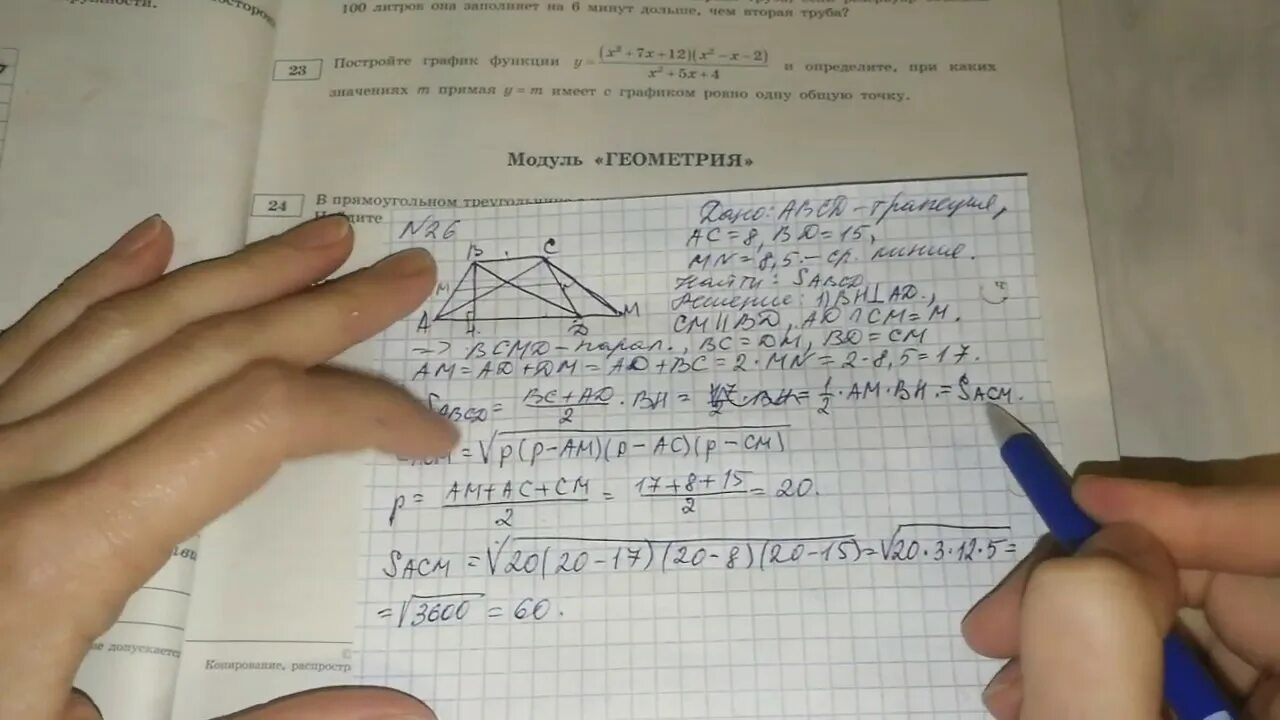 100 литров она заполняет на 6 минут дольше, чем вторая труба?
23
Постройте график функции y = (x² + 7x + 12)(x² − x − 2) / x² + 5x + 4 и определите, при каких
значениях m прямая y = m имеет с графиком ровно одну общую точку.
Модуль «ГЕОМЕТРИЯ»
24
В прямоугольном треугольнике
№26
B C
M
A H D M
Дано: ABCD – трапеция,
AC = 8, BD = 15,
MN = 8,5 – ср. линия.
Найти: S ABCD
Решение: 1) BH ⊥ AD,
CM || BD, AD ∩ CM = M.
=> BCMD – парал., BC = DM, BD = CM
AM = AD + DM = AD + BC = 2 · MN = 2 · 8,5 = 17.
S ABCD = BC + AD / 2 · BH = 1/2 · AM · BH = S ACM.
= √p(p − AM)(p − AC)(p − CM)
p = AM + AC + CM / 2 = 17 + 8 + 15 / 2 = 20.
S ACM = √20(20 − 17)(20 − 8)(20 − 15) = √20 · 3 · 12 · 5 =
= √3600 = 60.
допускается
Копирование, распростр